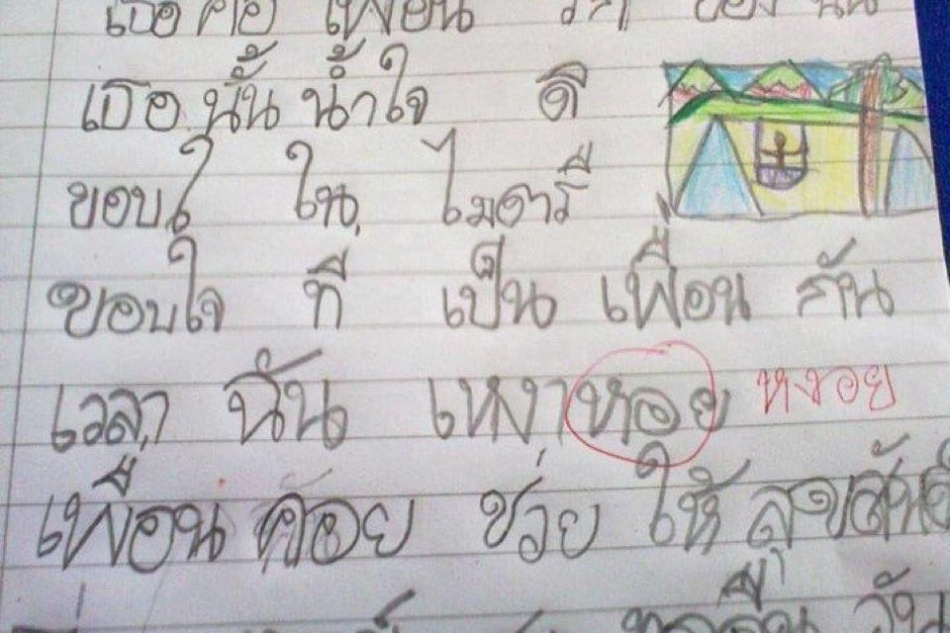 เธอ คือ เพื่อน รัก ของ ฉัน
เธอ นั้น น้ำใจ ดี
ขอบใ ใน ไมตรี
ขอบใจ ที่ เป็น เพื่อน กัน
เวลา ฉัน เหงาหอย หงอย
เพื่อน คอย ช่วย ให้ สุขสันต์